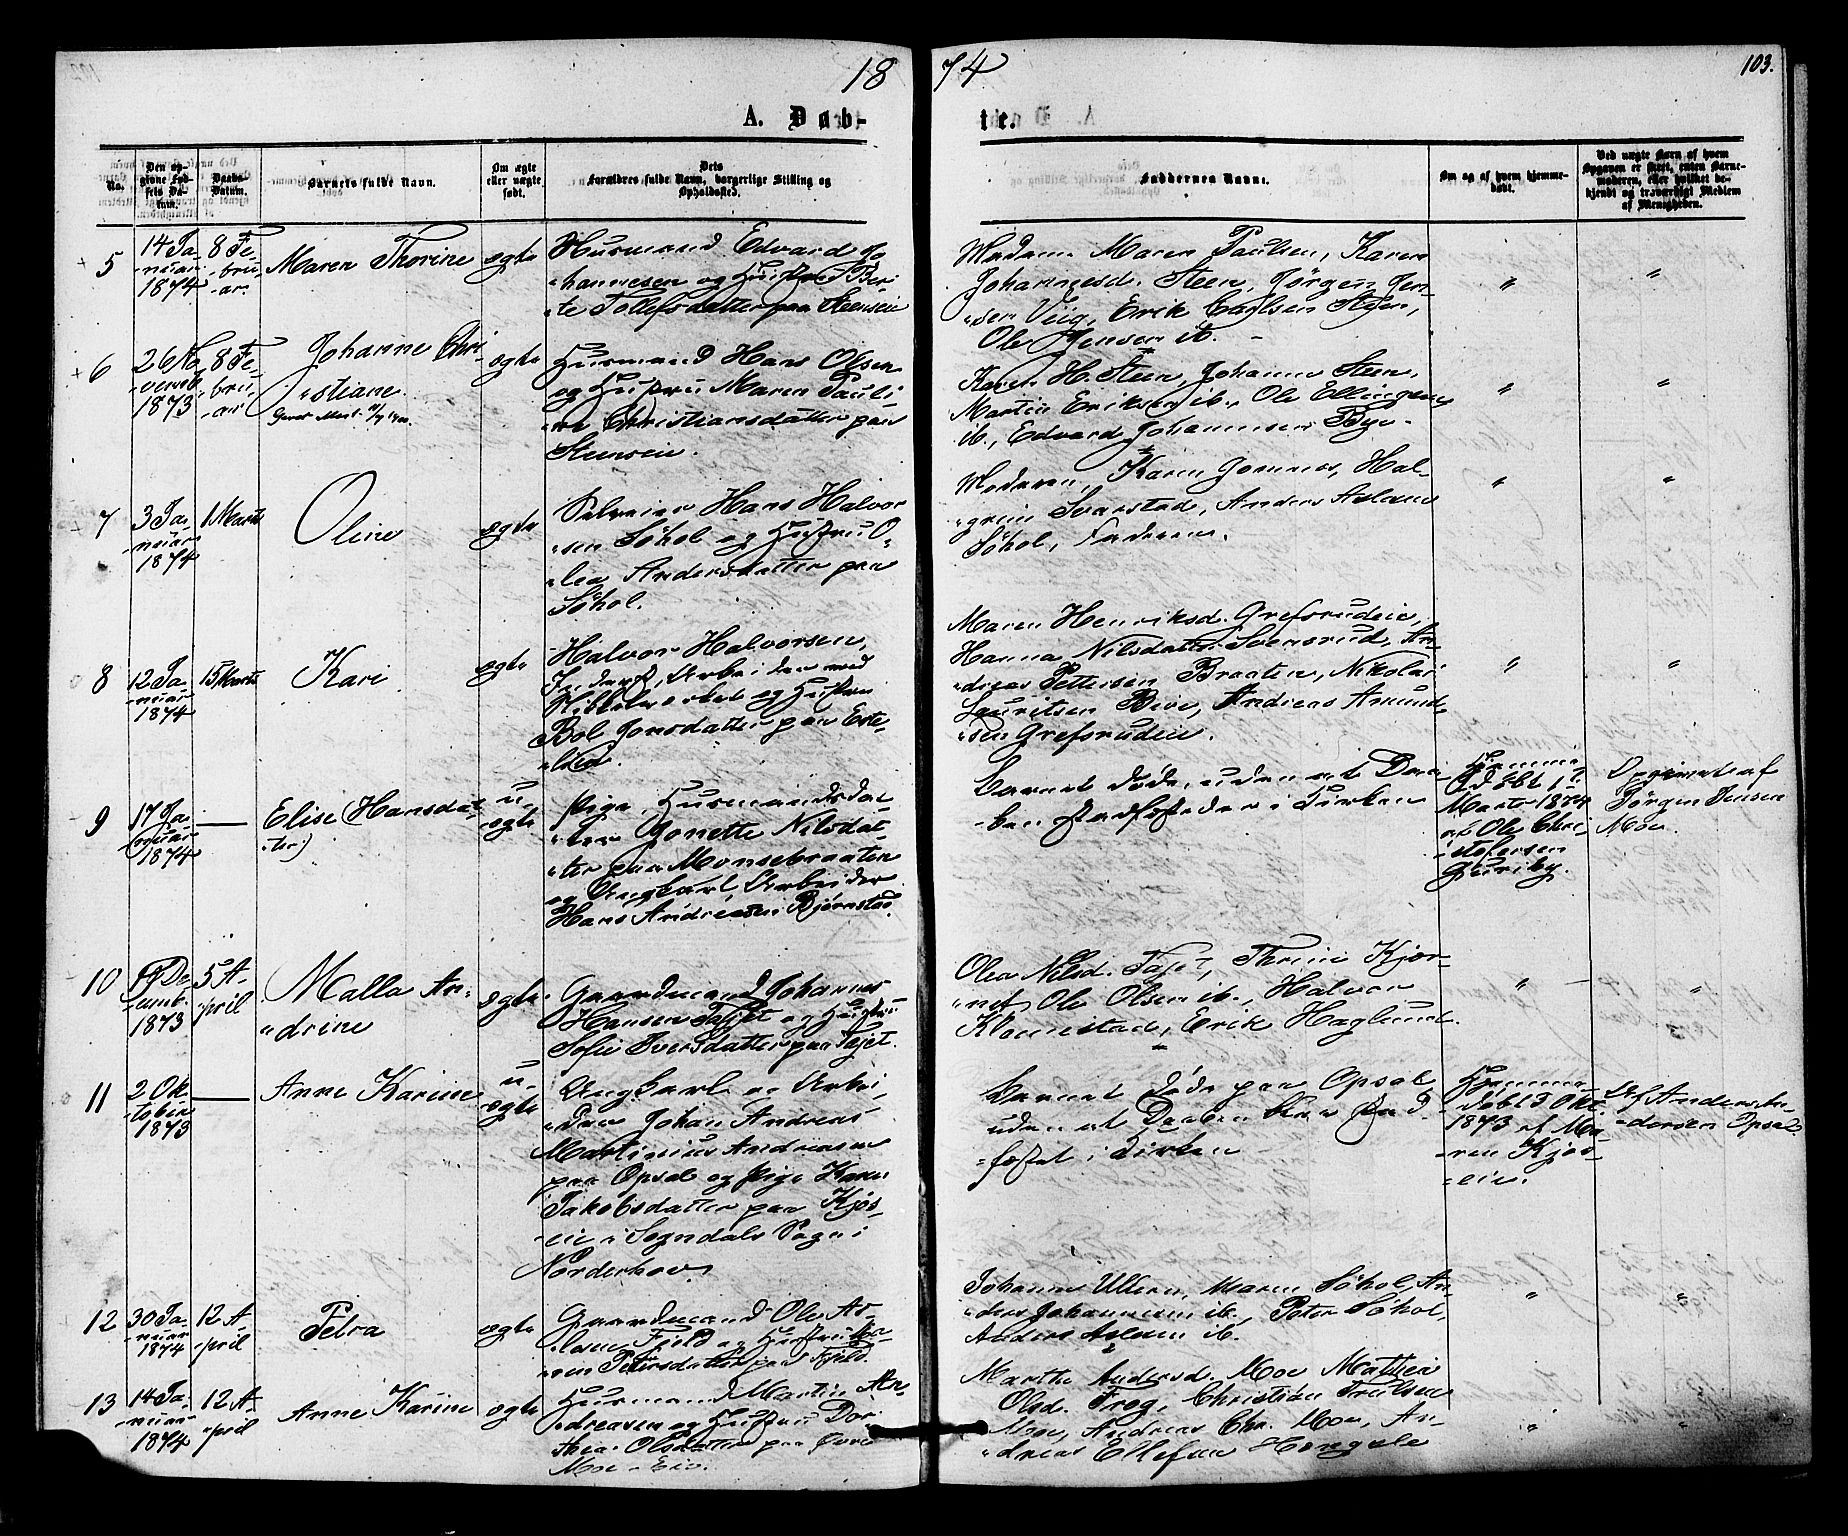 18 74
103.
A. Dab- te.
No.
Den opgivne Fødsels Datum.
Daabs-Datum.
Barnets fulde Navn.
Om ægte eller uægte født.
Dets Forældres fulde Navn, borgerlige Stilling og Opholdssted.
Faddernes Navne.
Om og af hvem hjemmedøbt.
Ved uægte Barn af hvem Opgaven er skeet, enten Barnemoderen, eller hvilket bekjendt og troværdigt Medlem af Menigheden.
5
14 Ja-
-nuar
1874
8 Fe-
-bru-
-ar.
Maren Thorine
ægte
Husmand Edvard Jo-
-hannesen og Hustru Ber-
-te Tollefsdatter paa Steenseie
Madam Maren Paulsen, Karen
Johannesd. Steen, Jørgen Jen-
-sen Veig, Erik Carlsen Steen,
Ole Jensen ib. -
"
"
6
26 No-
-vemb.
1873
8 Fe-
-bru-
-ar
Johanne Chri-
-stiane.
ægte
Husmand Hans Olsen
og Hustru Maren Pauli-
-ne Christiansdatter paa
Steenseie.
Karen H. Steen, Johanne Steen,
Martin Eriksen ib., Ole Ellingsen
ib., Edvard Johannesen Bye.
"
"
7
3 Ja-
-nuar
1874
1 Marts
Oline
ægte
Selveier Hans Halvor-
-sen Søhol og Hustru O-
-lea Andersdatter paa
Søhol.
Madam Karen Gomnes, Hal-
-grim Svarstad, Anders Aslesen
Søhol, Faderen.
"
"
8
12 Ja-
-nuar
1874
15 Marts
Kari
ægte
Halvor Halvorsen,
Inderst, Arbeider ved
Nikkelverket og Hustru
Bol Jonsdatter paa Erte-
-lien
Maren Henriksd. Grefsrudeie,
Hanna Nilsdatter Svensrud, An-
-dreas Pettersen Braaten, Nikolai
Lauritsen Bive, Andreas Amund-
-sen Grefsruden.
"
"
9
17 Ja-
-nuar
1874
—
Elise (Hansdat-
-ter)
u-
-ægte
Pige, Husmandsdat-
-ter Jonette Nilsdat-
-ter paa Monsebraaten
og Ungkarl, Arbeider
Hans Andreasen Bjørnstad.
Barnet døde, uden at Daa-
-ben stadfæstedes i Kirken
Hjemme-
-døbt 1ste
Marts 1874
af Ole Chri-
-stofersen
Guriby.
Opgivet af
Jørgen Jensen
Moe.
10
De-
-cemb.
1873
5 A-
-pril
Malla An-
-drine
ægte
Gaardmand Johannes
Hansen Fjet og Hustru
Sofie Iversdatter paa Fjet.
Olea Nilsd. Thrine Kjær-
-net, Ole Olsen ib., Halvor
Klonnestad, Erik Haglund.
"
"
11
2 Ok-
-tober
1873
—
Anne Karine
u-
-ægte
Ungkarl og Arbei-
-der Johan Andreas
Martinius Andreasen
paa Opsal og Pige Karen
Jakobsdatter paa Kjøs-
-eie i Sogndals Sogn i
Norderhov
Barnet døde paa Opsal
uden at Daaben blev stad-
-fæstet i Kirken
Hjemme-
-døbt 3 Okt.
1873 af Ma-
-ren Kjøs-
-eie.
Af Anders An-
-dersen Opsal
12
30 Ja-
-nuar
1874
12 A-
-pril
Petra
ægte
Gaardmand Ole As-
-lesen Fjeld og Hustru Ka-
-ren Petersdatter paa Fjeld.
Johanne Ullern, Maren Søhol, An-
-ders Johannesen ib., Peter Søhol,
Anders Aslesen ib.
"
"
13
14 Ja-
-nuar
1874
12 A-
-pril
Anne Karine
ægte
Husmand Martin An-
-dreasen og Hustru Dor-
-thea Olsdatter paa Øvre
Moe-Eie.
Marthe Andersd. Moe, Mathea
Olsd. Trøg, Christian Trulsen
Moe, Andreas Chr. Moe, An-
-dreas Ellefsen Hengsle
"
"